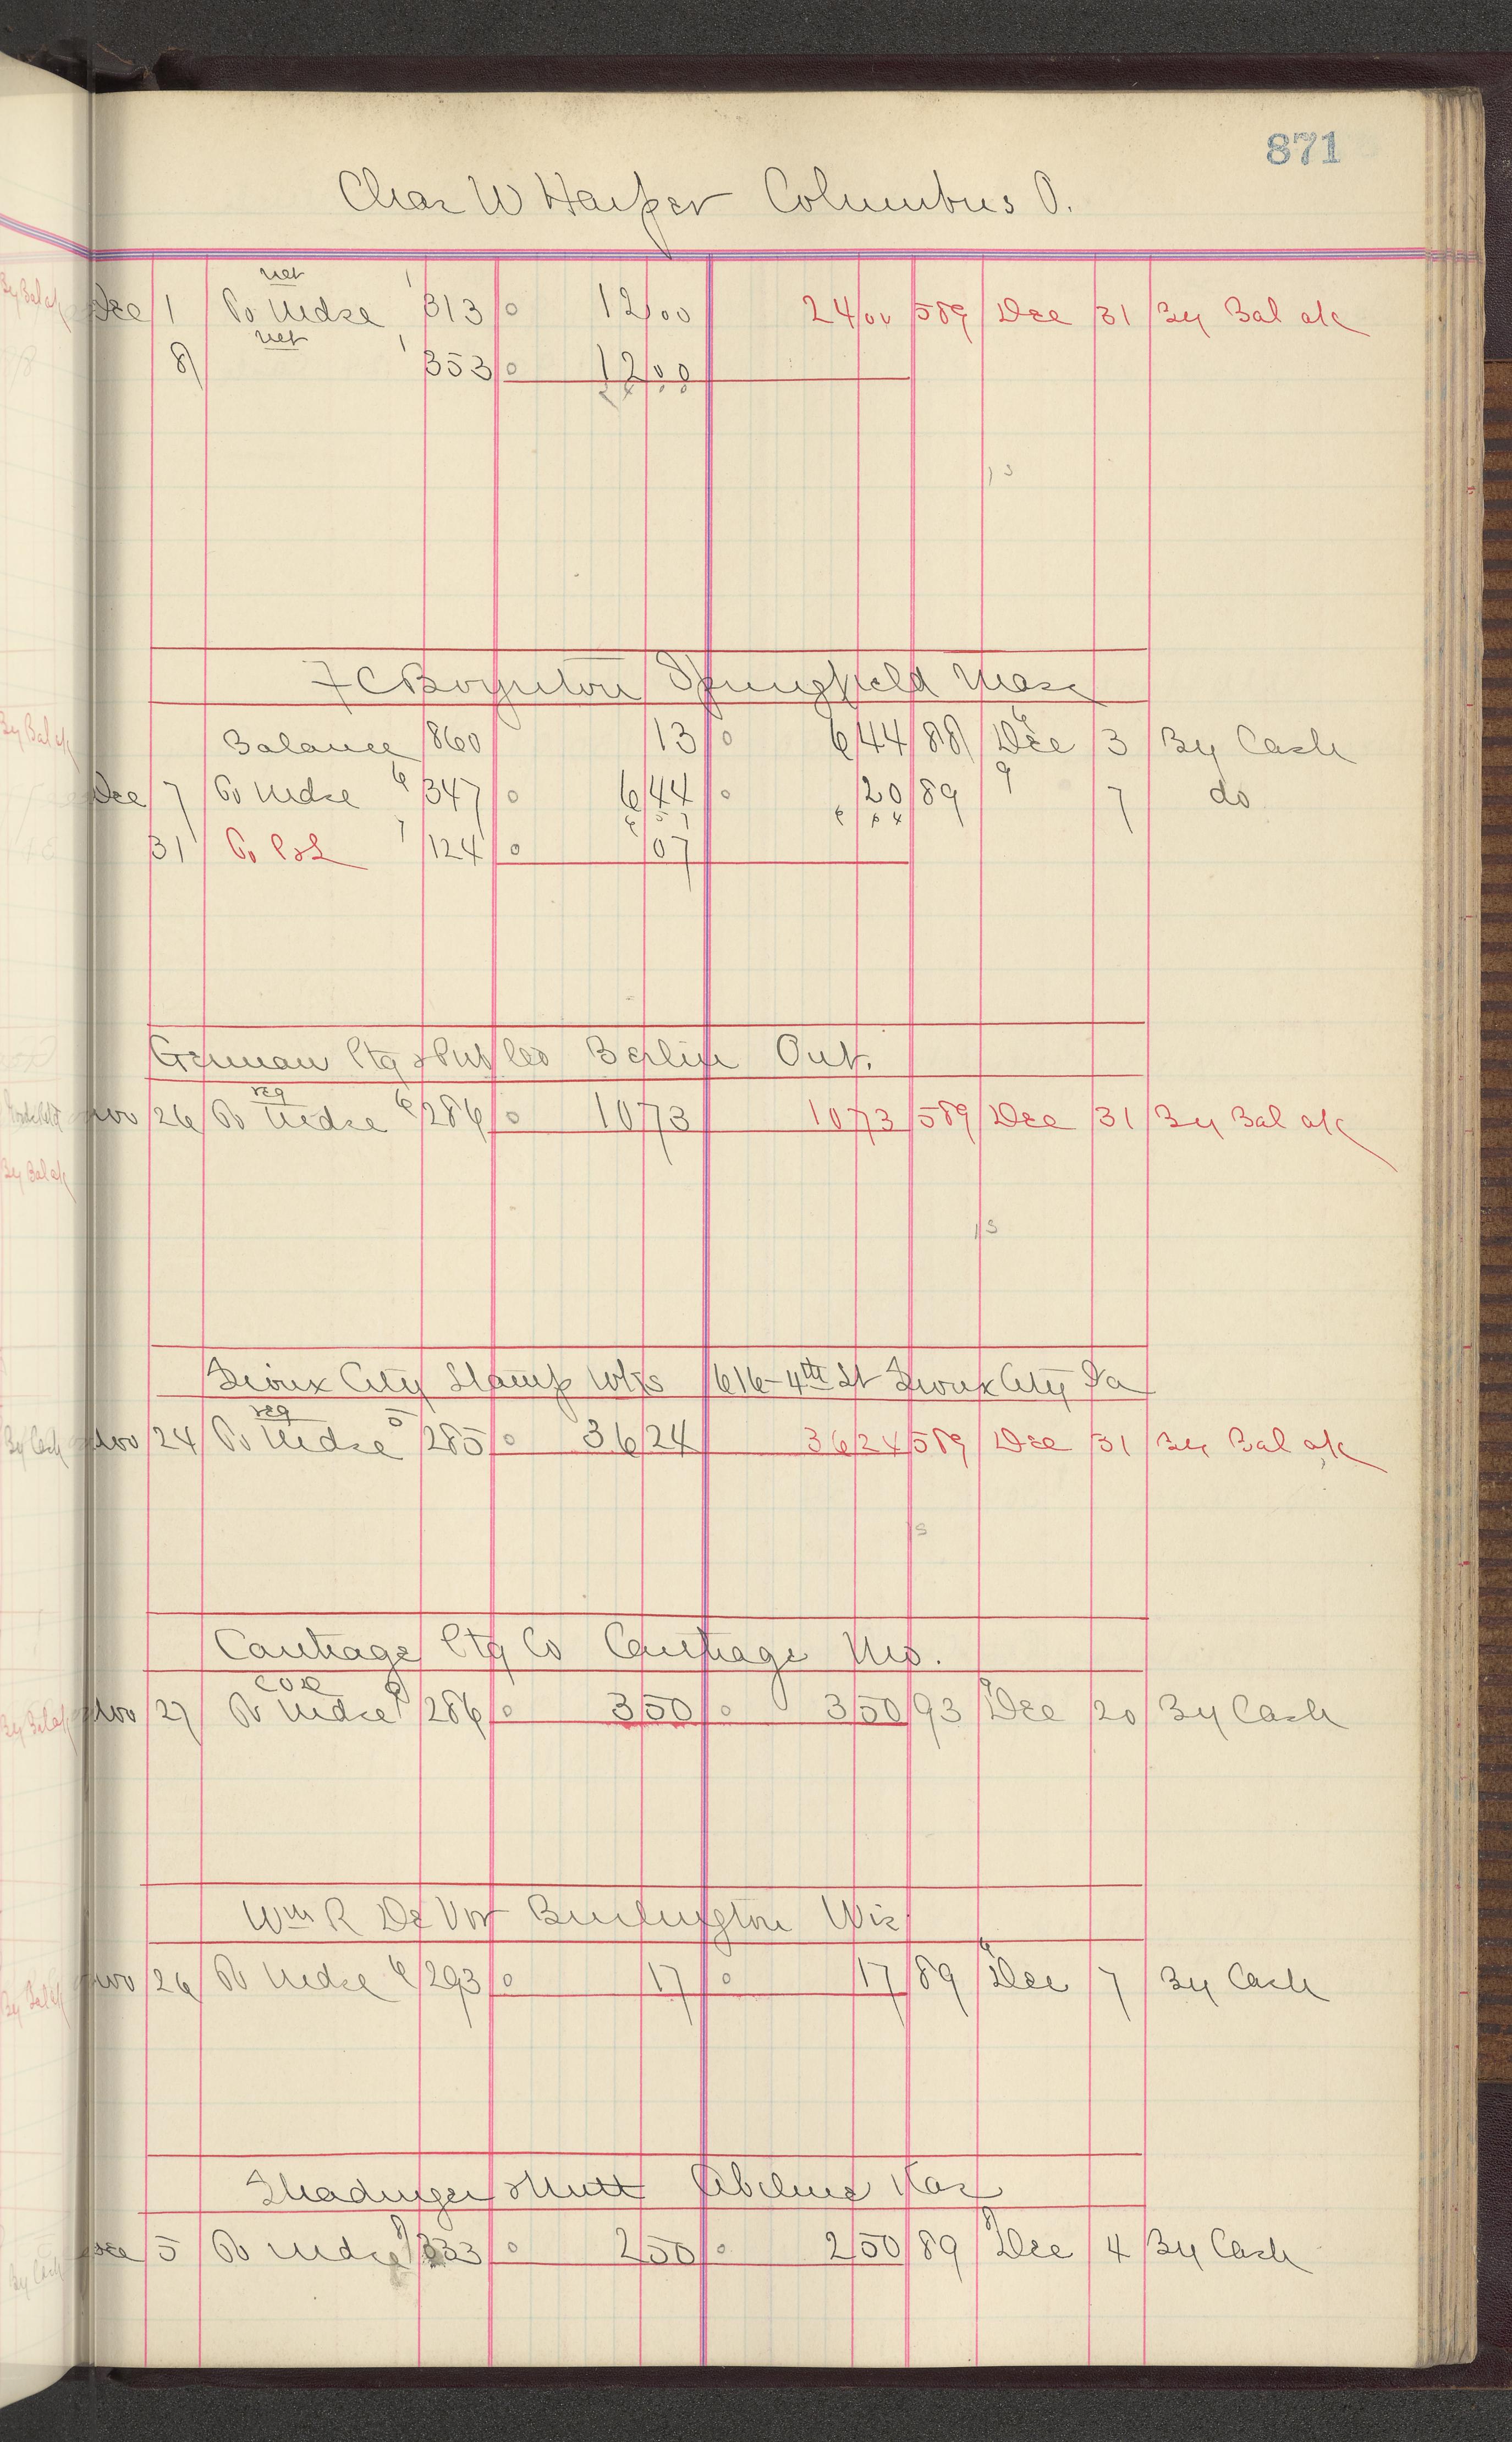 871
Chas W Harper Columbus O.
net
Dec 1 To Mdse 1 313 0 12 00 24 00 589 Dec 31 By Bal a/c
net
8 1 353 0 12 00
24 00
F C Boynton Springfield Mass
Balance 860 13 0 6 44 88 Dec 6 3 By Cash
Dec 7 To Mdse 6 347 0 6 44 0 20 89 9 7 do
6 57 6 64
31 To P&L 7 124 0 07
German Ptg & Pub Co Berlin Ont.
reg
Nov 26 To Mdse 6 286 0 10 73 10 73 589 Dec 31 By Bal a/c
Sioux City Stamp Wks 616-4th St Sioux City Ia
reg
Nov 24 To Mdse 5 285 0 36 24 36 24 589 Dec 31 By Bal a/c
Carthage Ptg Co Carthage Mo.
Nov 27 To Mdse 8 286 0 3 50 0 3 50 93 Dec 20 By Cash
Wm R De Vor Burlington Wis
Nov 26 To Mdse 6 293 0 17 0 17 89 Dec 6 7 By Cash
Shadinger & Mutt Abilene Kas
Dec 5 To Mdse 8 333 0 2 50 0 2 50 89 Dec 8 4 By Cash